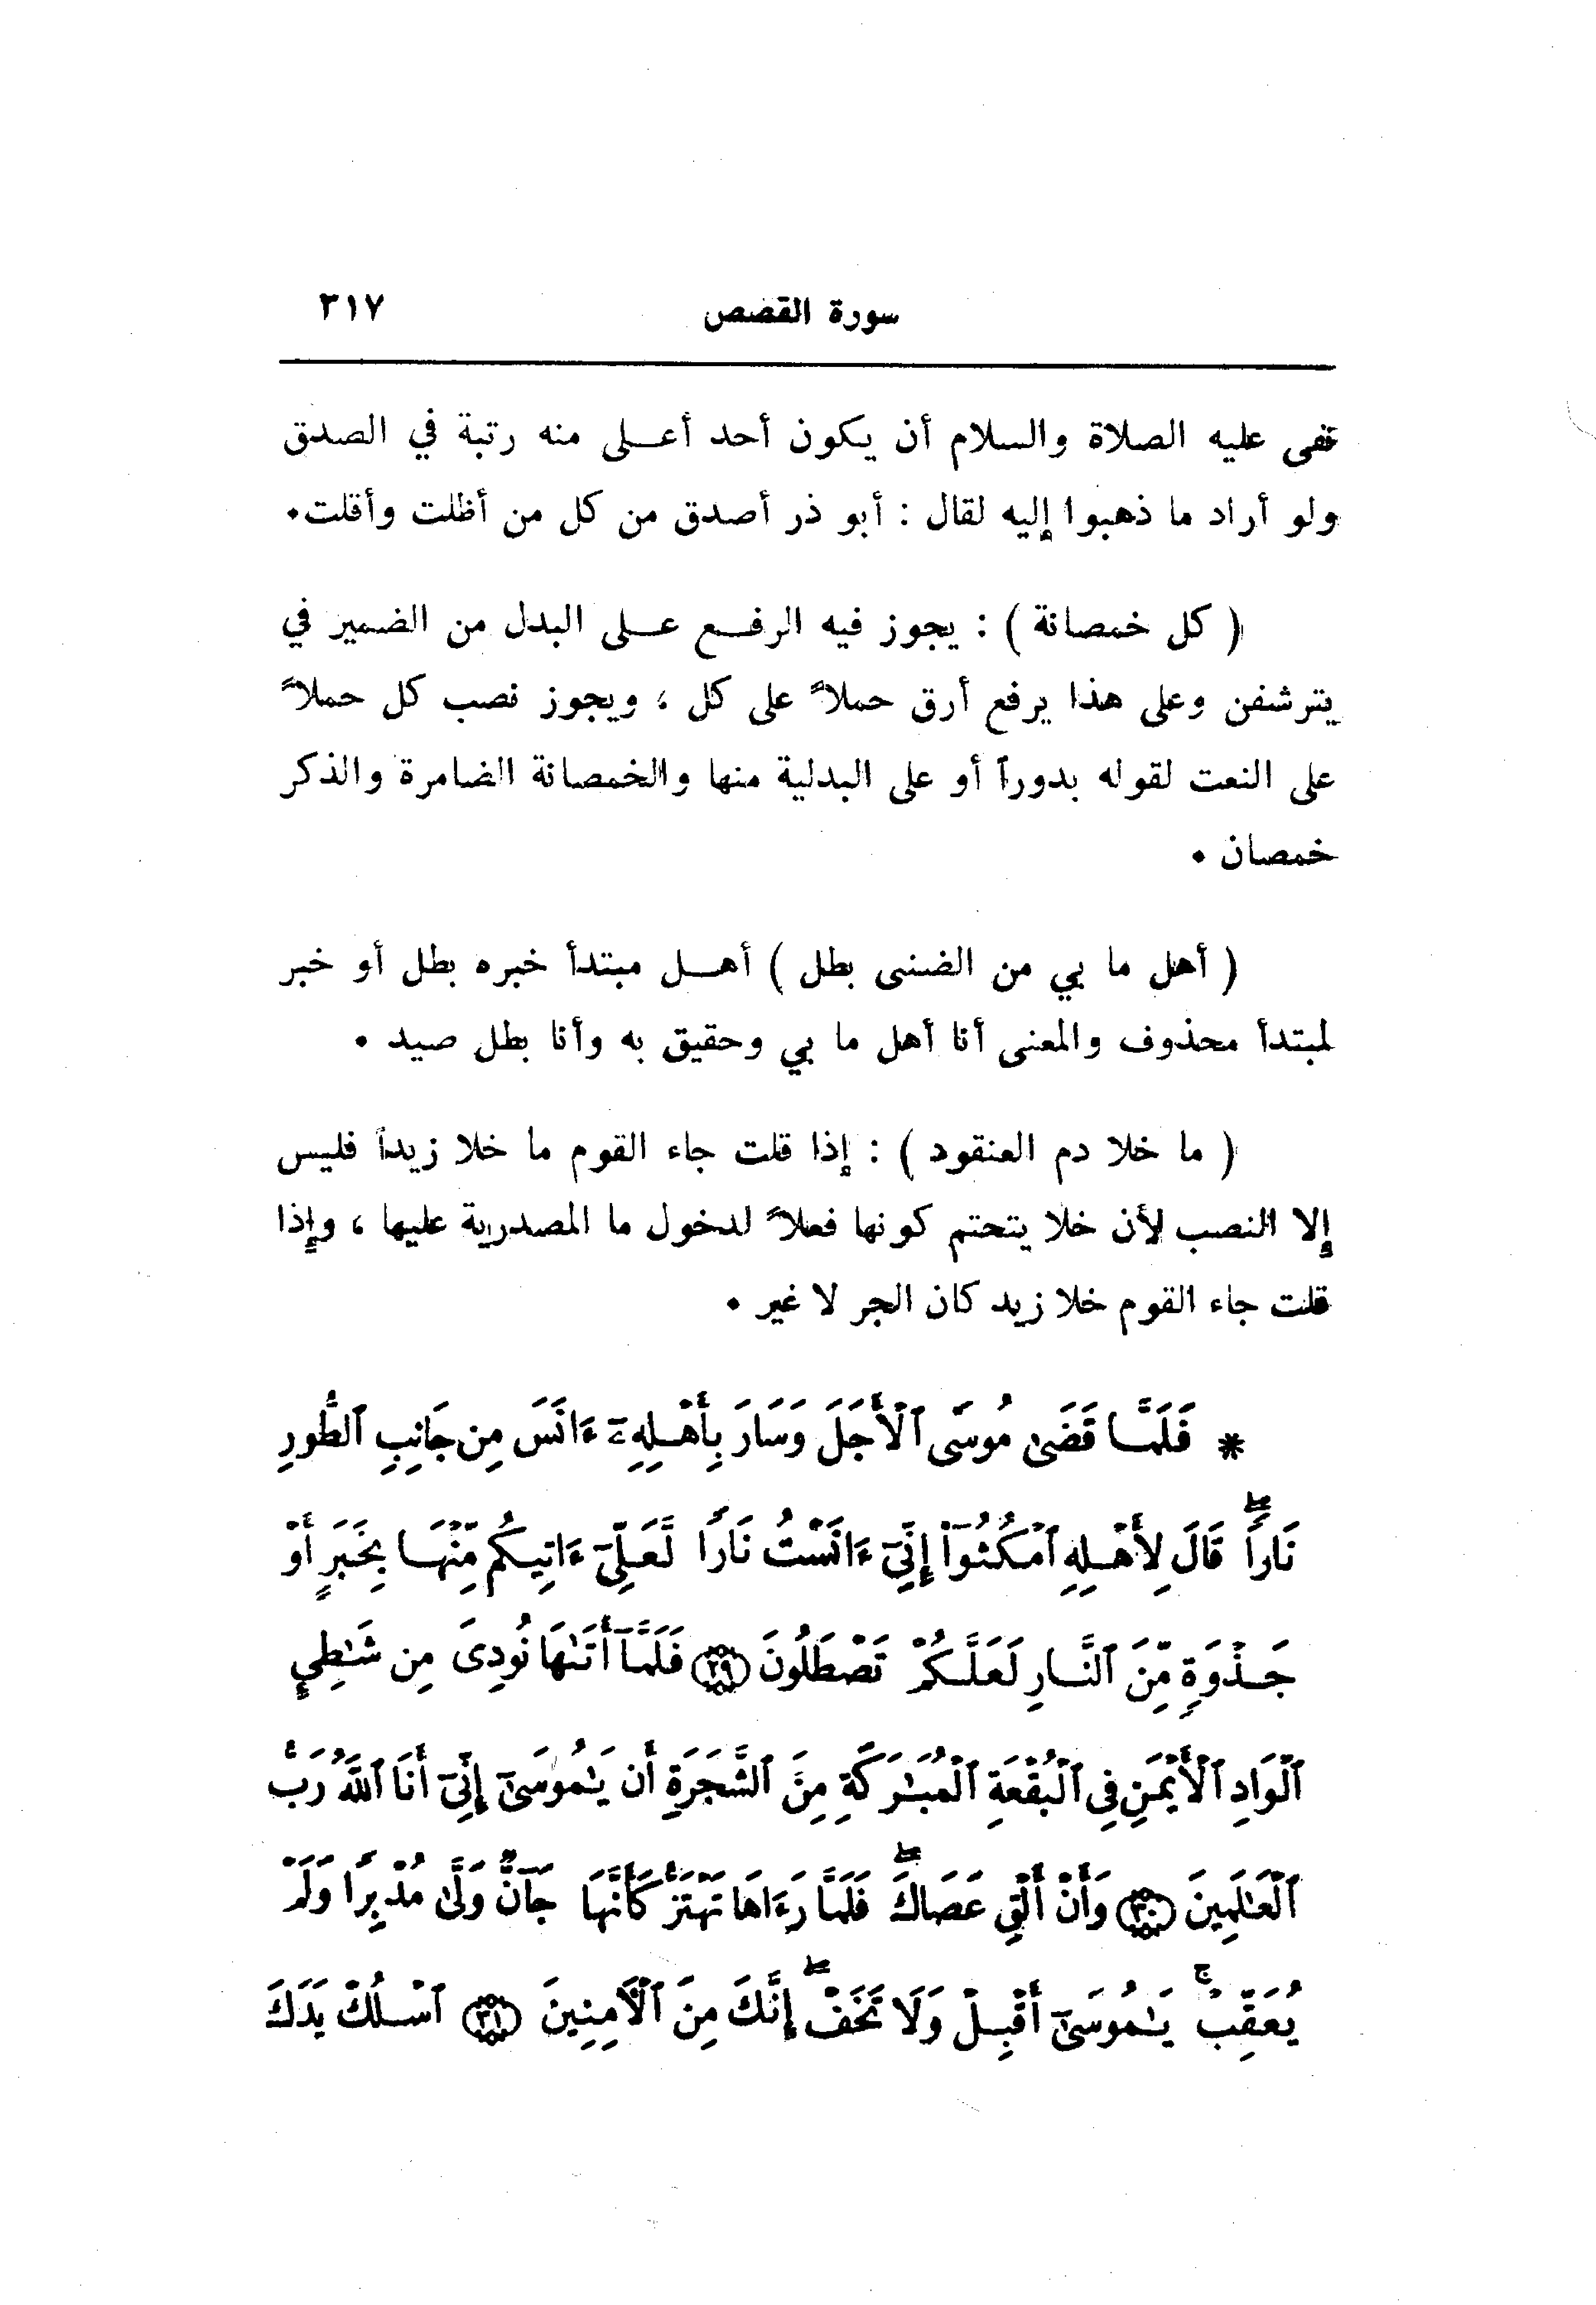 سورة القصص ٣١٧
نفى عليه الصلاة والسلام أن يكون أحد أعلى منه رتبة في الصدق
ولو أراد ما ذهبوا إليه لقال : أبو ذر أصدق من كل من أظلت وأقلت.
( كل خمصانة ) : يجوز فيه الرفع على البدل من الضمير في
يترشفن وعلى هذا يرفع أرق حملاً على كل ، ويجوز نصب كل حملاً
على النعت لقوله بدوراً أو على البدلية منها والخمصانة الضامرة والذكر
خمصان .
( أهل ما بي من الضنى بطل ) أهل مبتدأ خبره بطل أو خبر
لمبتدأ محذوف والمعنى أنا أهل ما بي وحقيق به وأنا بطل صيد .
( ما خلا دم العنقود ) : إذا قلت جاء القوم ما خلا زيداً فليس
إلا النصب لأن خلا يتحتم كونها فعلاً لدخول ما المصدرية عليها ، وإذا
قلت جاء القوم خلا زيد كان الجر لا غير .
* فَلَمَّا قَضَىٰ مُوسَى ٱلْأَجَلَ وَسَارَ بِأَهْلِهِۦٓ ءَانَسَ مِن جَانِبِ ٱلطُّورِ
نَارًاۖ قَالَ لِأَهْلِهِ ٱمْكُثُوٓا۟ إِنِّىٓ ءَانَسْتُ نَارًا لَّعَلِّىٓ ءَاتِيكُم مِّنْهَا بِخَبَرٍ أَوْ
جَذْوَةٍ مِّنَ ٱلنَّارِ لَعَلَّكُمْ تَصْطَلُونَ ٢٩ فَلَمَّآ أَتَىٰهَا نُودِىَ مِن شَٰطِئِ
ٱلْوَادِ ٱلْأَيْمَنِ فِى ٱلْبُقْعَةِ ٱلْمُبَٰرَكَةِ مِنَ ٱلشَّجَرَةِ أَن يَٰمُوسَىٰٓ إِنِّىٓ أَنَا ٱللَّهُ رَبُّ
ٱلْعَٰلَمِينَ ٣٠ وَأَنْ أَلْقِ عَصَاكَۖ فَلَمَّا رَءَاهَا تَهْتَزُّ كَأَنَّهَا جَآنٌّ وَلَّىٰ مُدْبِرًا وَلَمْ
يُعَقِّبْۚ يَٰمُوسَىٰٓ أَقْبِلْ وَلَا تَخَفْۖ إِنَّكَ مِنَ ٱلْآمِنِينَ ٣١ ٱسْلُكْ يَدَكَ